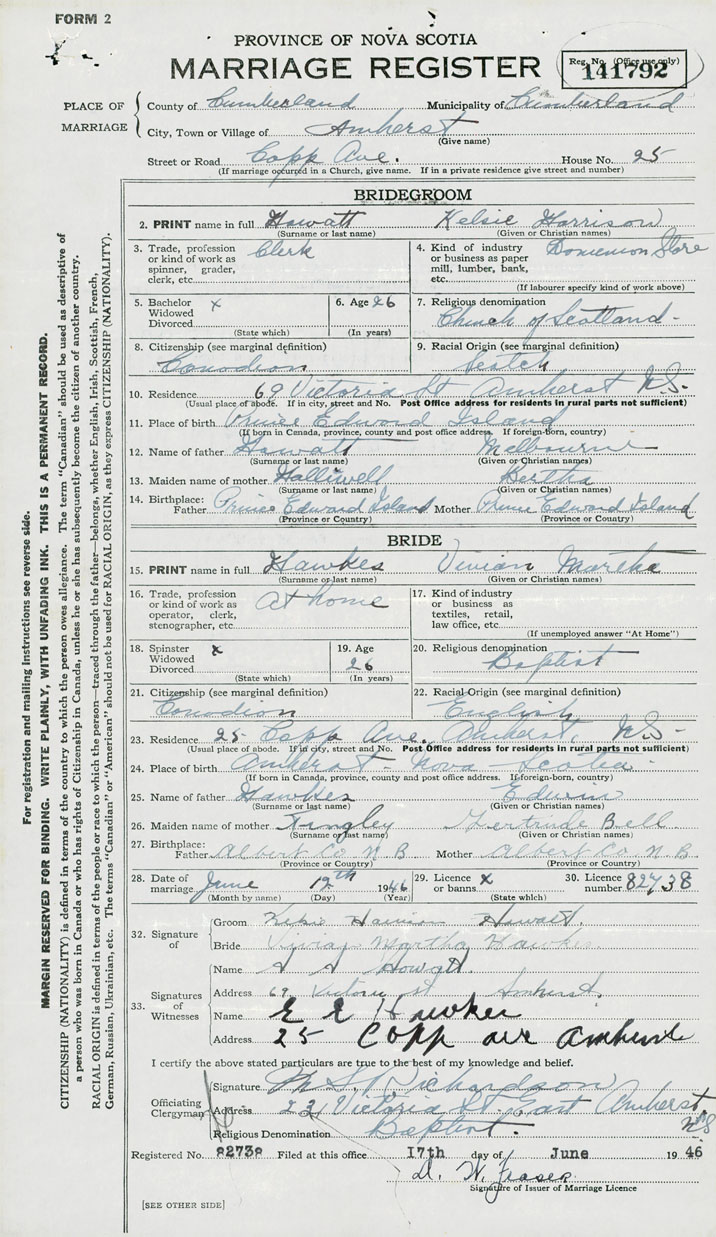 FORM 2
PROVINCE OF NOVA SCOTIA
MARRIAGE REGISTER
Reg. No. (Office use only)
141792
PLACE OF MARRIAGE
County of Cumberland Municipality of Cumberland
City, Town or Village of Amherst
(Give name)
Street or Road Copp Ave. House No. 25
(If marriage occurred in a Church, give name. If in a private residence give street and number)
BRIDEGROOM
2. PRINT name in full Howatt Kelsie Harrison
(Surname or last name) (Given or Christian names)
3. Trade, profession or kind of work as spinner, grader, clerk, etc. Clerk
4. Kind of industry or business as paper mill, lumber, bank, etc. Dominion Store
(If labourer specify kind of work above)
5. Bachelor x
Widowed
Divorced
(State which)
6. Age 26
(In years)
7. Religious denomination
Church of Scotland
8. Citizenship (see marginal definition)
Canadian
9. Racial Origin (see marginal definition)
Scotch
10. Residence 69 Victoria St Amherst N.S.
(Usual place of abode. If in city, street and No. Post Office address for residents in rural parts not sufficient)
11. Place of birth Prince Edward Island
(If born in Canada, province, county and post office address. If foreign-born, country)
12. Name of father Howatt Melbourne
(Surname or last name) (Given or Christian names)
13. Maiden name of mother Halliwell Bertha
(Surname or last name) (Given or Christian names)
14. Birthplace:
Father Prince Edward Island Mother Prince Edward Island
(Province or Country) (Province or Country)
BRIDE
15. PRINT name in full Hawkes Vivian Martha
(Surname or last name) (Given or Christian names)
16. Trade, profession or kind of work as operator, clerk, stenographer, etc. At home
17. Kind of industry or business as textiles, retail, law office, etc.
(If unemployed answer "At Home")
18. Spinster x
Widowed
Divorced
(State which)
19. Age
26
(In years)
20. Religious denomination
Baptist
21. Citizenship (see marginal definition)
Canadian
22. Racial Origin (see marginal definition)
English
23. Residence 25 Copp Ave. Amherst N.S.
(Usual place of abode. If in city, street and No. Post Office address for residents in rural parts not sufficient)
24. Place of birth Amherst - Nova Scotia
(If born in Canada, province, county and post office address. If foreign-born, country)
25. Name of father Hawkes Edwin
(Surname or last name) (Given or Christian names)
26. Maiden name of mother Tingley Gertrude Bell
(Surname or last name) (Given or Christian names)
27. Birthplace:
Father Albert Co. N.B Mother Albert Co. N.B.
(Province or Country) (Province or Country)
28. Date of marriage June 12th 1946
(Month by name) (Day) (Year)
29. Licence or banns x
(State which)
30. Licence number 82738
32. Signature of
Groom Kelsie Harrison Howatt
Bride Vivian Martha Hawkes
33. Signatures of Witnesses
Name Howatt
Address 69 Victoria St Amherst.
Name E E Hawkes
Address 25 Copp ave Amherst
I certify the above stated particulars are true to the best of my knowledge and belief.
Officiating Clergyman
Signature Richardson
Address 23 Victoria St. East Amherst N S
Religious Denomination Baptist.
Registered No. 82738 Filed at this office 17th day of June 1946
D. W. Fraser
Signature of Issuer of Marriage Licence
[SEE OTHER SIDE]
For registration and mailing instructions see reverse side.
MARGIN RESERVED FOR BINDING. WRITE PLAINLY, WITH UNFADING INK. THIS IS A PERMANENT RECORD.
CITIZENSHIP (NATIONALITY) is defined in terms of the country to which the person owes allegiance. The term "Canadian" should be used as descriptive of
a person who was born in Canada or who has rights of Citizenship in Canada, unless he or she has subsequently become the citizen of another country.
RACIAL ORIGIN is defined in terms of the people or race to which the person—traced through the father—belongs, whether English, Irish, Scottish, French,
German, Russian, Ukrainian, etc. The terms "Canadian" or "American" should not be used for RACIAL ORIGIN, as they express CITIZENSHIP (NATIONALITY).